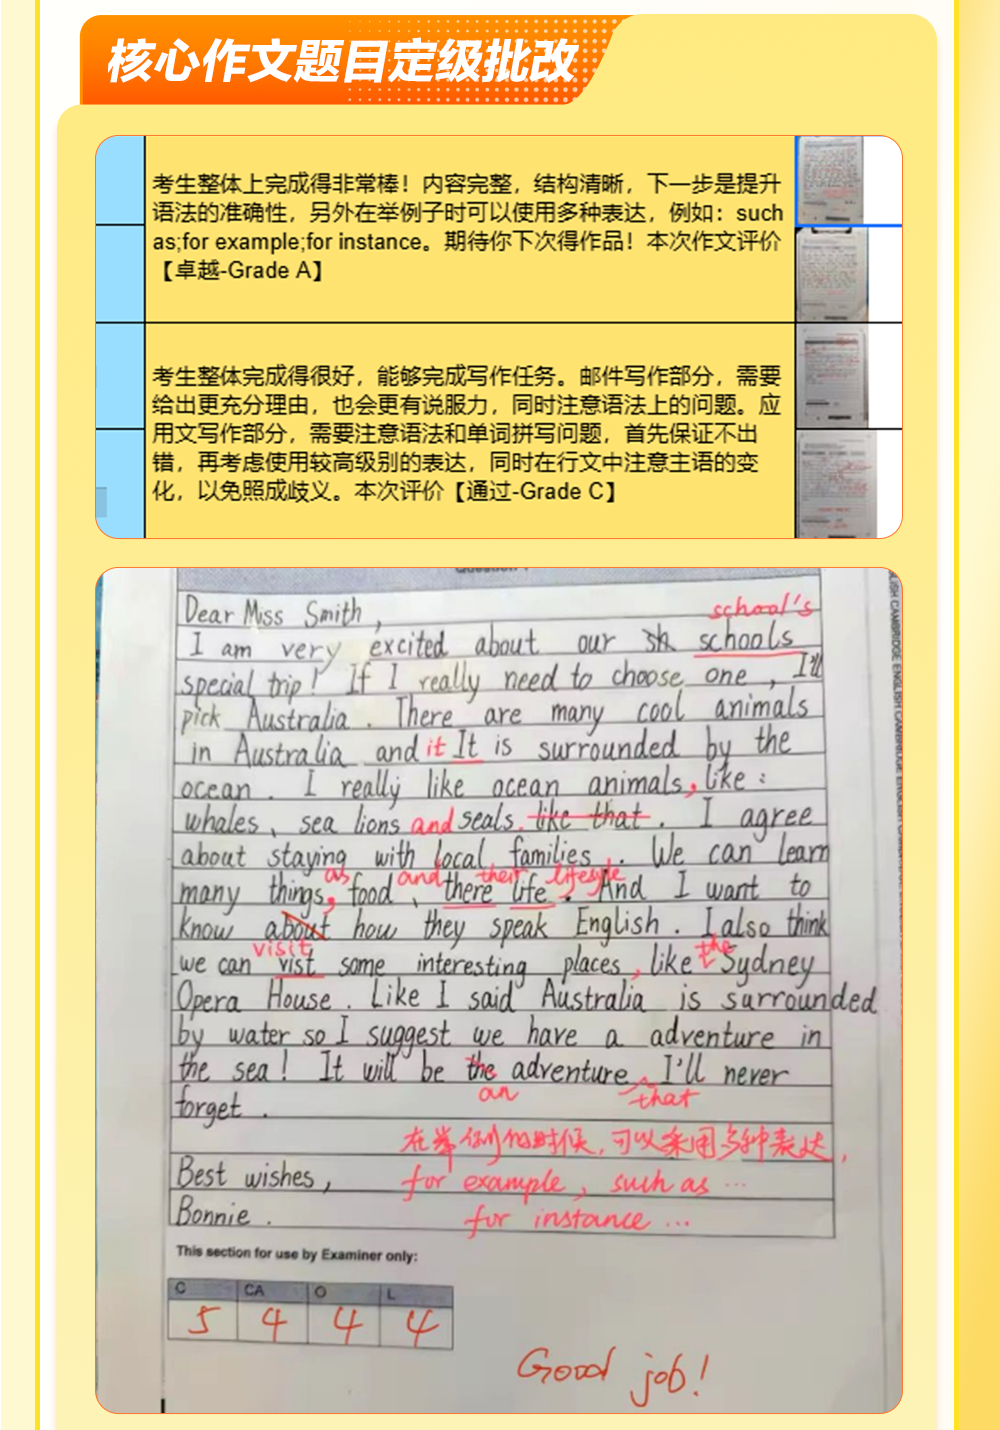 核心作文题目定级批改
考生整体上完成得非常棒！内容完整，结构清晰，下一步是提升
语法的准确性，另外在举例子时可以使用多种表达，例如：such
as;for example;for instance。期待你下次得作品！本次作文评价
【卓越-Grade A】
考生整体完成得很好，能够完成写作任务。邮件写作部分，需要
给出更充分理由，也会更有说服力，同时注意语法上的问题。应
用文写作部分，需要注意语法和单词拼写问题，首先保证不出
错，再考虑使用较高级别的表达，同时在行文中注意主语的变
化，以免照成歧义。本次评价【通过-Grade C】
Dear Miss Smith,
school's
I am very excited about our sh schools
special trip! If I really need to choose one, I'll
pick Australia. There are many cool animals
in Australia and it It is surrounded by the
ocean. I really like ocean animals, like:
whales、sea lions and seals. like that. I agree
about staying with local families. We can learn
as and their lifestyle
many things, food、there life. And I want to
know about how they speak English. I also think
visit the
we can vist some interesting places, like Sydney
Opera House. Like I said Australia is surrounded
by water so I suggest we have a adventure in
the sea! It will be the adventure I'll never
an that
forget.
在举例的时候，可以采用多种表达，
Best wishes,
for example, such as ...
Bonnie.
for instance ...
This section for use by Examiner only:
C CA O L
5 4 4 4
Good job!